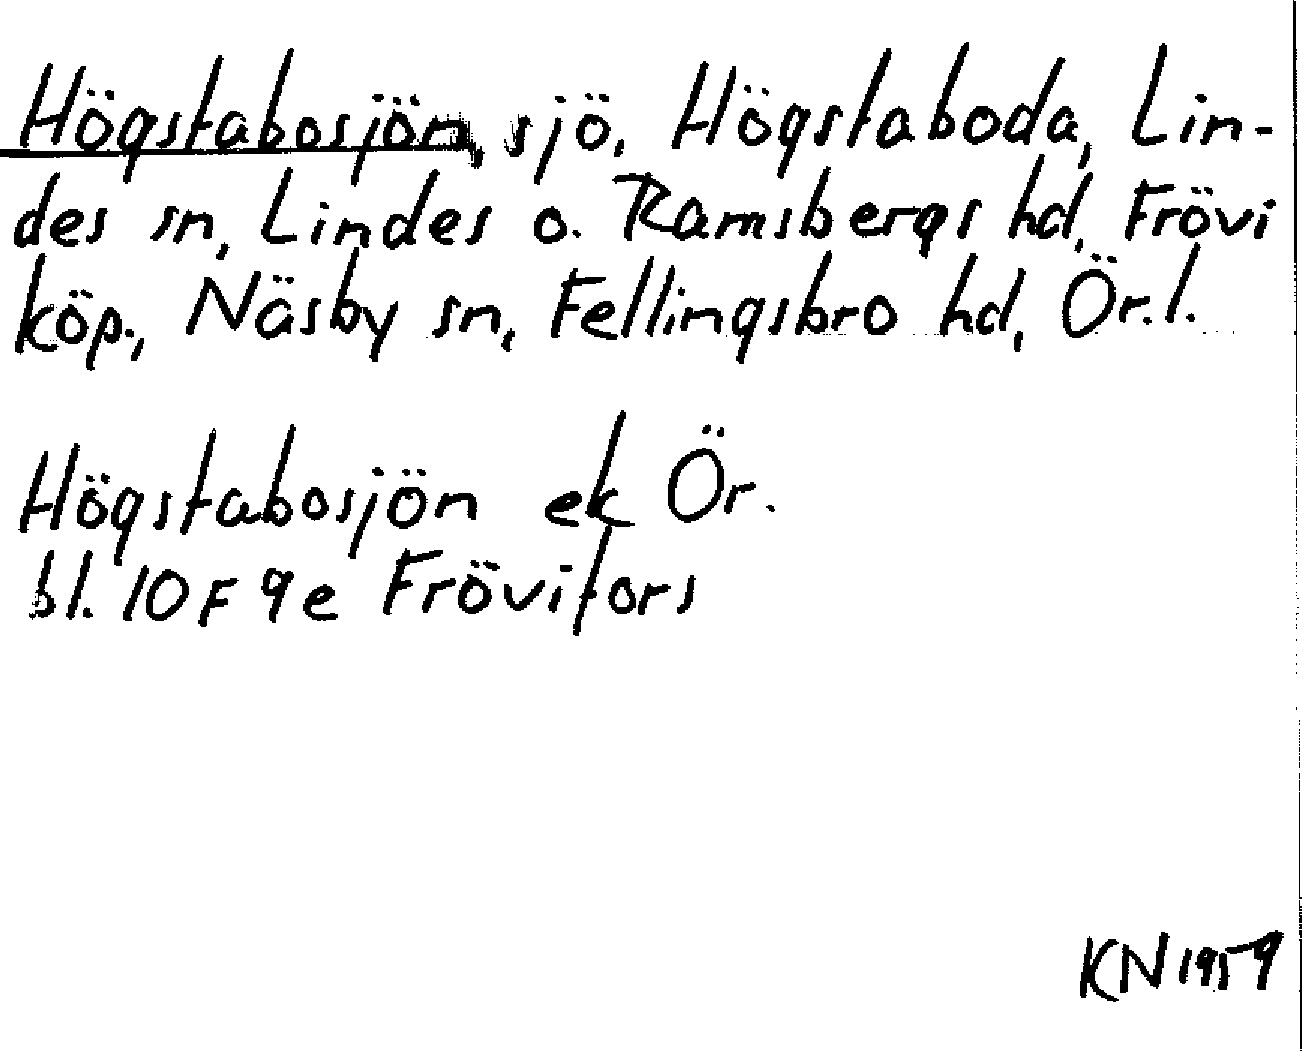 Högstabosjön, sjö, Högstaboda, Lin-
des sn, Lindes o. Ramsbergs hd, Frövi
köp., Näsby sn, Fellingsbro hd, Ör. l.
Högstabosjön ek Ör.
bl. 10 F 9 e Frövifors
KN 1959